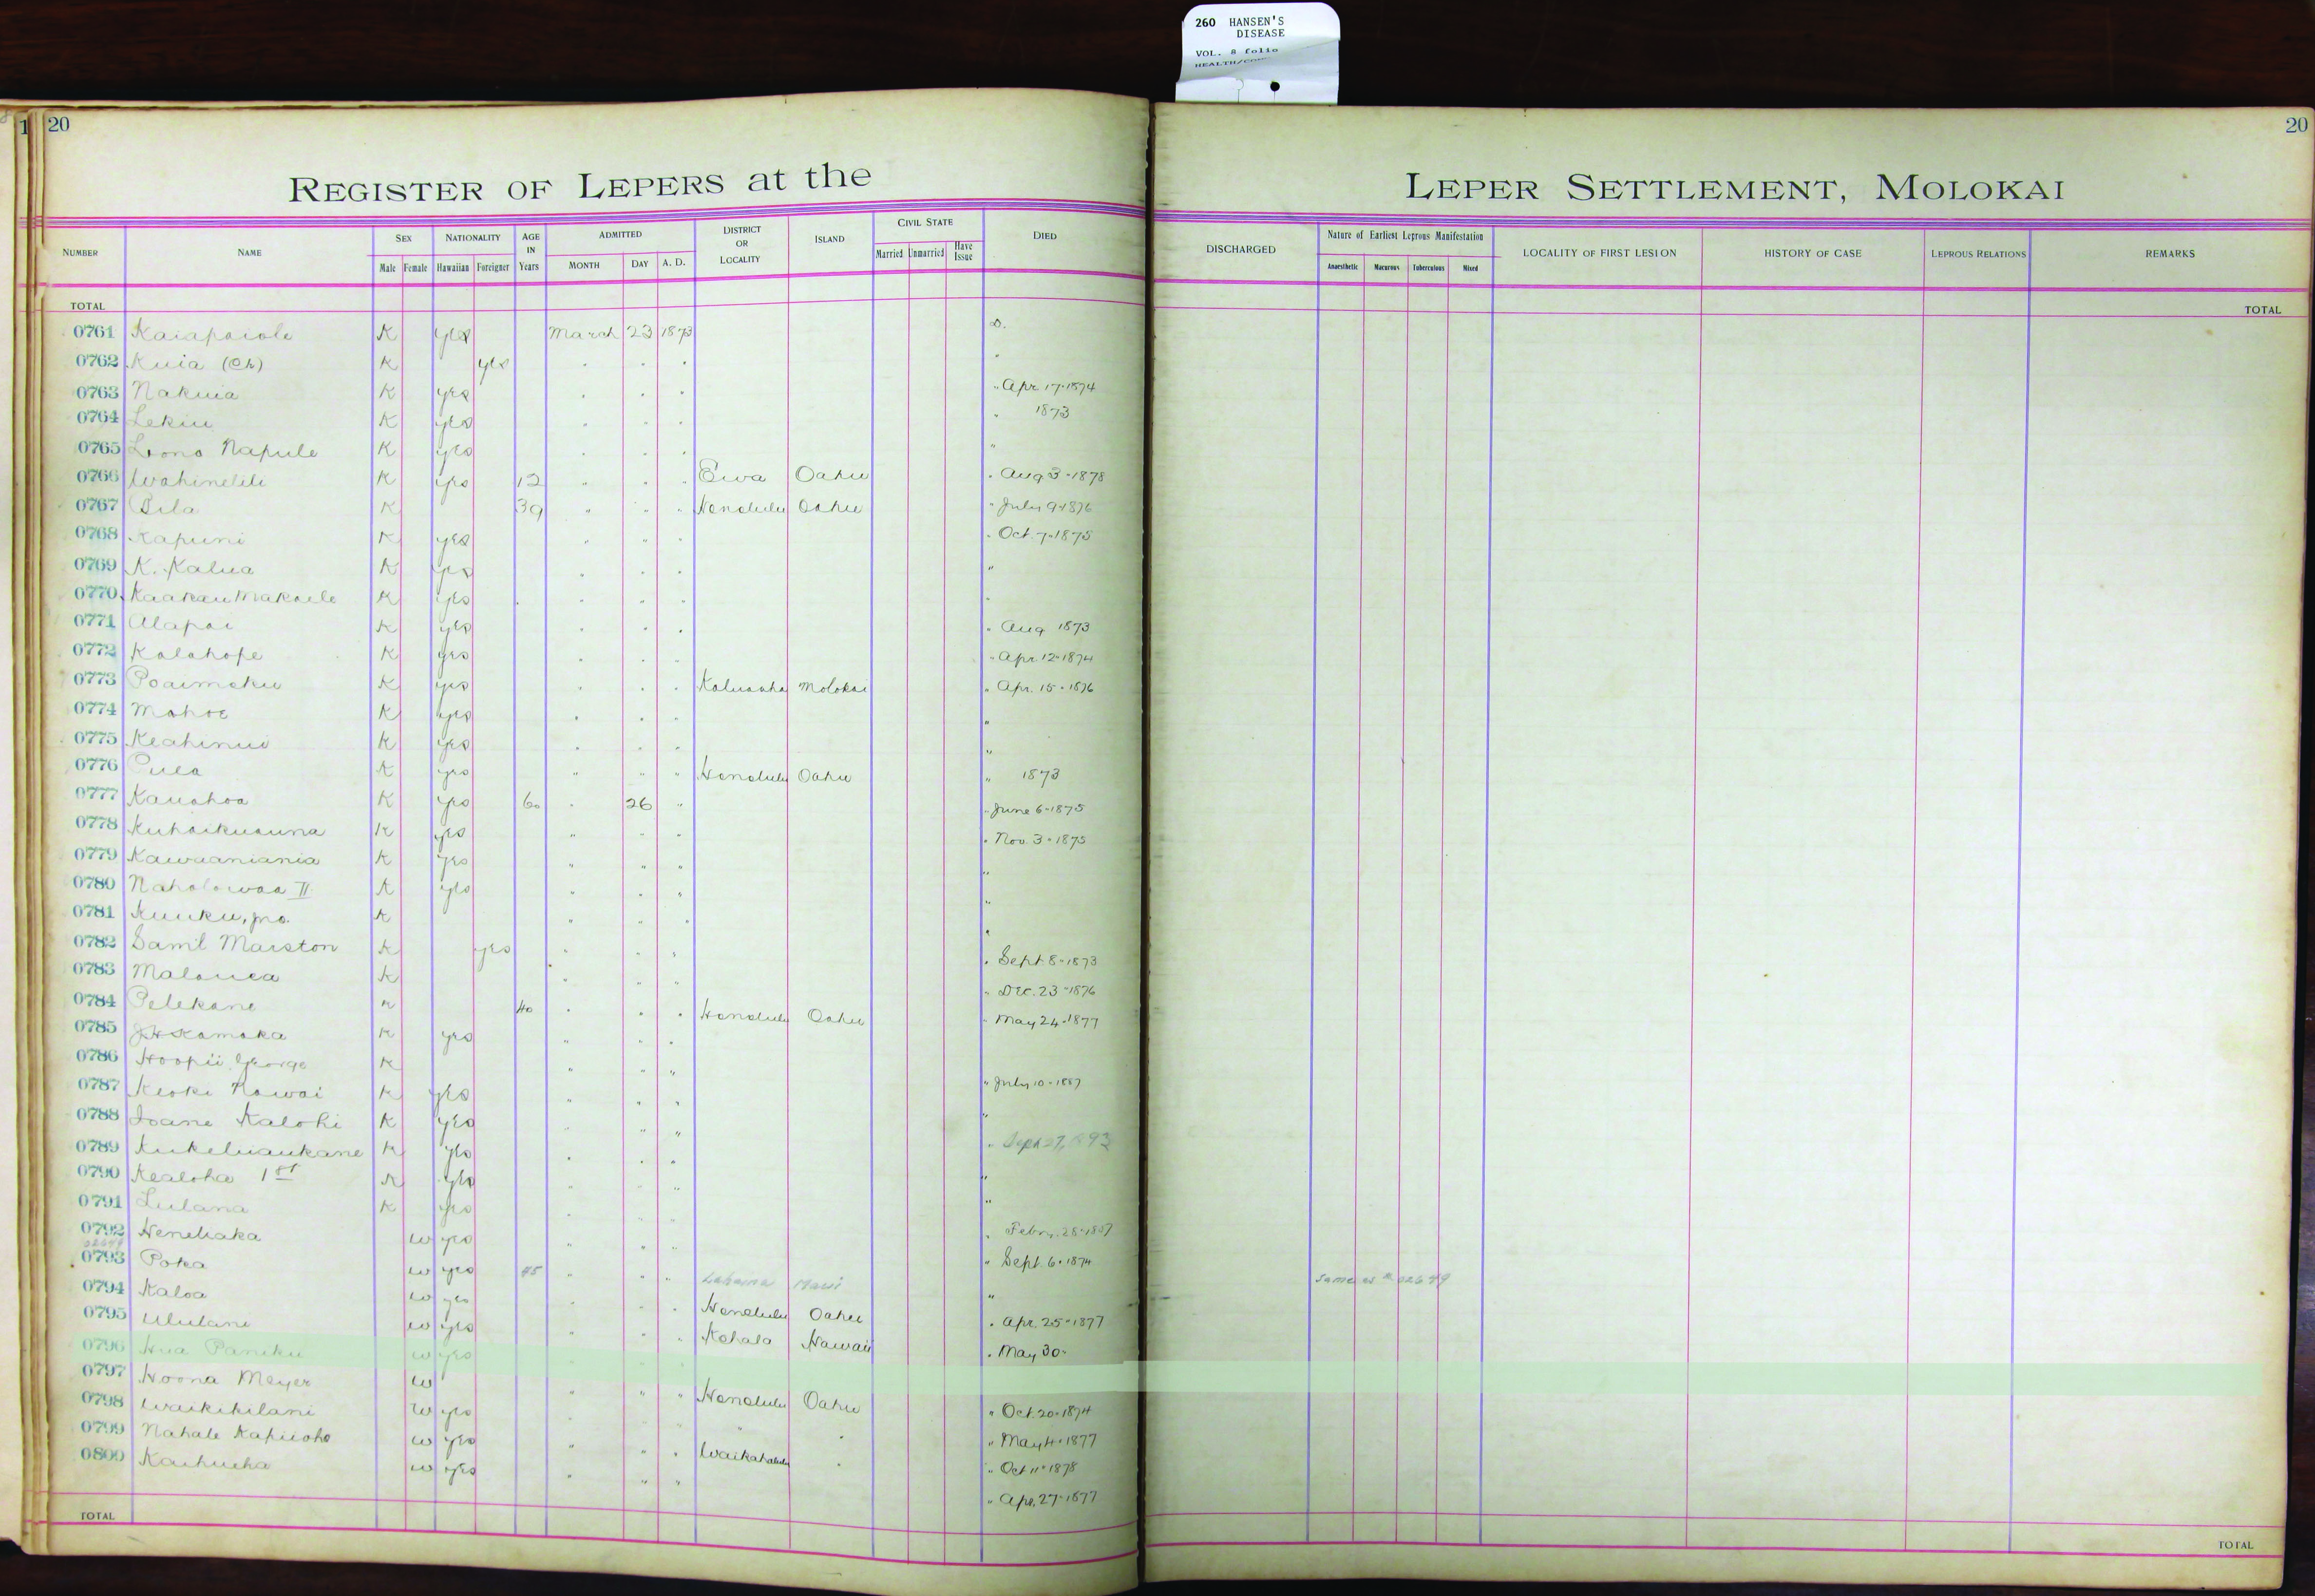 260 HANSEN'S
DISEASE
VOL. 8 folio
20
20
REGISTER OF LEPERS at the LEPER SETTLEMENT, MOLOKAI
NUMBER NAME SEX Male Female NATIONALITY Hawaiian Foreigner AGE IN Years ADMITTED MONTH DAY A. D. DISTRICT OR LOCALITY ISLAND CIVIL STATE Married Unmarried Have Issue DIED DISCHARGED Nature of Earliest Leprous Manifestation Anaesthetic Macurous Tuberculous Mixed LOCALITY OF FIRST LESION HISTORY OF CASE LEPROUS RELATIONS REMARKS
TOTAL TOTAL
0761 Kaiapaiole K yes March 23 1873 D.
0762 Kuia (Ch) K yes " " " "
0763 Nakuia K yes " " " " Apr. 17-1874
0764 Lekiu K yes " " " " 1873
0765 Lono Napule K yes " " " "
0766 Wahinelili K yes 12 " " " Ewa Oahu " Aug 3-1878
0767 Pila K 39 " " " Honolulu Oahu " July 9-1876
0768 Kapuni K yes " " " " Oct. 7-1875
0769 K. Kalua K yes " " " "
0770 Kaakau Makaele K yes " " " "
0771 Alapai K yes " " " " Aug 1873
0772 Kalahope K yes " " " " Apr. 12-1874
0773 Poaimoku K yes " " " Kaluaaha Molokai " Apr. 15-1876
0774 Mahoe K yes " " " "
0775 Keahinui K yes " " " "
0776 Pula K yes " " " Honolulu Oahu " 1873
0777 Kauahoa K yes 60 " 26 " " June 6-1875
0778 Kuhaikuauna K yes " " " " Nov. 3-1875
0779 Kawaaniania K yes " " " "
0780 Naholowaa II K yes " " " "
0781 Kuuku, jno. K " " " "
0782 Saml Marston K yes " " " " Sept 8-1873
0783 Malanea K " " " " Dec. 23-1876
0784 Pelekane K 40 " " " Honolulu Oahu " May 24-1877
0785 J.H. Kamaka K yes " " "
0786 Hoopii George K " " " " July 10-1887
0787 Keoki Nawai K yes " " " "
0788 Ioane Kalohi K yes " " " " Sept 27, 1893
0789 Kukeluaukane K yes " " " "
0790 Kealoha 1st K yes " " " "
0791 Lulana K yes " " " " Febry. 28-1887
0792 Heneliaka W yes " " " " Sept. 6-1874
02649
0793 Poka W yes 45 " " " Lahaina Maui " Same as # 02649
0794 Kaloa W yes " " " Honolulu Oahu " Apr. 25-1877
0795 Ululani W yes " " " Kohala Hawaii " May 30-
0796 Hua Paniku W yes
0797 Hoona Meyer W " " " Honolulu Oahu " Oct. 20-1874
0798 Waikikilani W yes " " " " " " May 4-1877
0799 Nahale Kapuoho W yes " " " Waikahalulu " " Oct 11-1878
0800 Kaihueha W yes " " " " Apr. 27-1877
TOTAL TOTAL